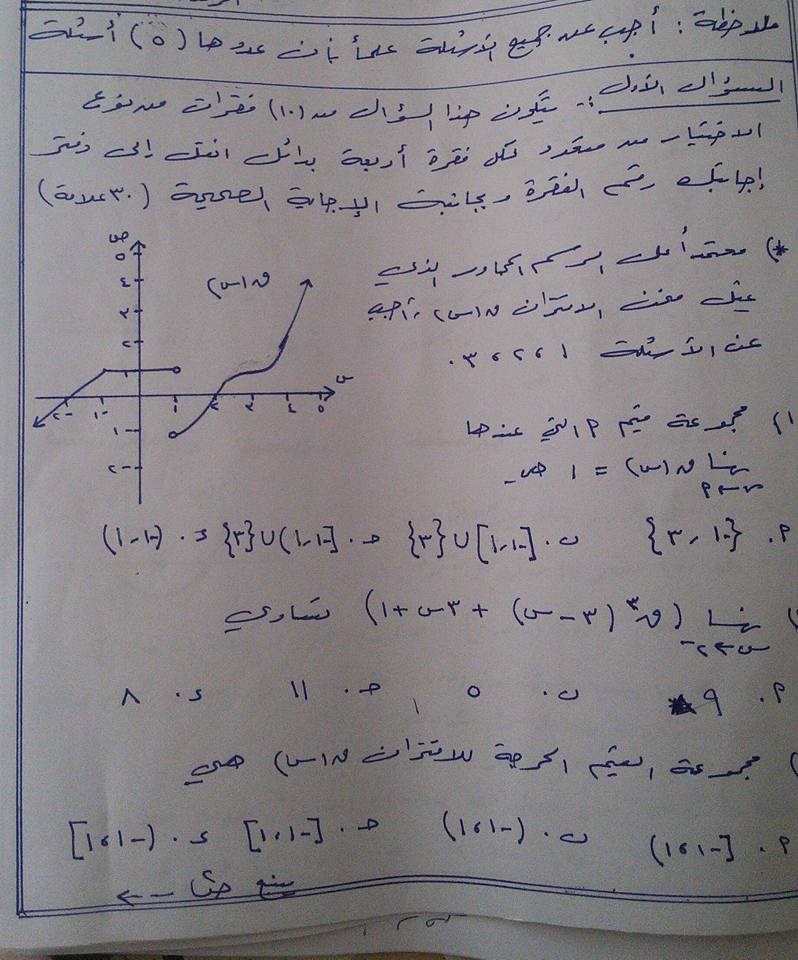 ملاحظة : أجب عن جميع الأسئلة علماً بأن عددها (٥) أسئلة
السؤال الأول :- يتكون هذا السؤال من (١٠) فقرات من نوع
الاختيار من متعدد لكل فقرة أربعة بدائل انقل إلى دفتر
إجابتك رقم الفقرة وبجانبه الإجابة الصحيحة (٣٠ علامة)
*) معتمداً على الرسم المجاور الذي
يمثل منحنى الاقتران ق(س) ، أجب
عن الأسئلة ١ ، ٢ ، ٣ .
ص
٥
٤
٣
٢
١
١-
٢-
ق(س)
س
٢- ١- ١ ٢ ٣ ٤ ٥
١) مجموعة قيم م التي عندها
نهــا ق(س) = ١ هي
س←م
م. {-١ ، ٣} ب. [-١ ، ١] ∪ {٣} حـ. [-١ ، ١) ∪ {٣} ء. (-١ ، ١)
) نهــا (ق٣(٣ - س) + ٣س + ١) تساوي
س←٢-
م. ٩ ب. ٥ حـ. ١١ ء. ٨
) مجموعة القيم الحرجة للاقتران ق(س) هي
م. [-١ ، ١) ب. (-١ ، ١) حـ. [-١ ، ١] ء. (-١ ، ١]
يتبع